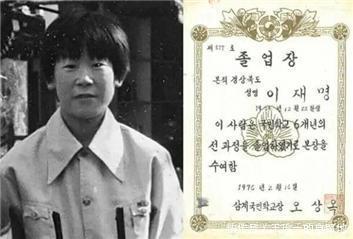 제 577 호
졸업장
본적 경상북도
성명 이재명
이 사람은 국민학교 6개년의
전 과정을 졸업하였기로 본장을
수여함
1976년 2월 16일
삼계국민학교장 오상옥